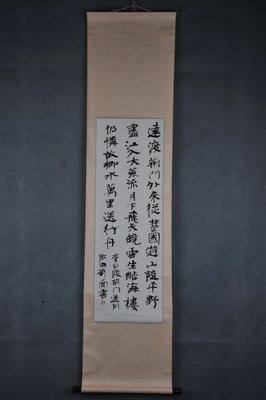 遠渡荆門外來從楚國遊山随平野
盡江入大荒流月下飛天鏡雲生結海樓
仍憐故鄉水萬里送行舟
李白渡荆門送别